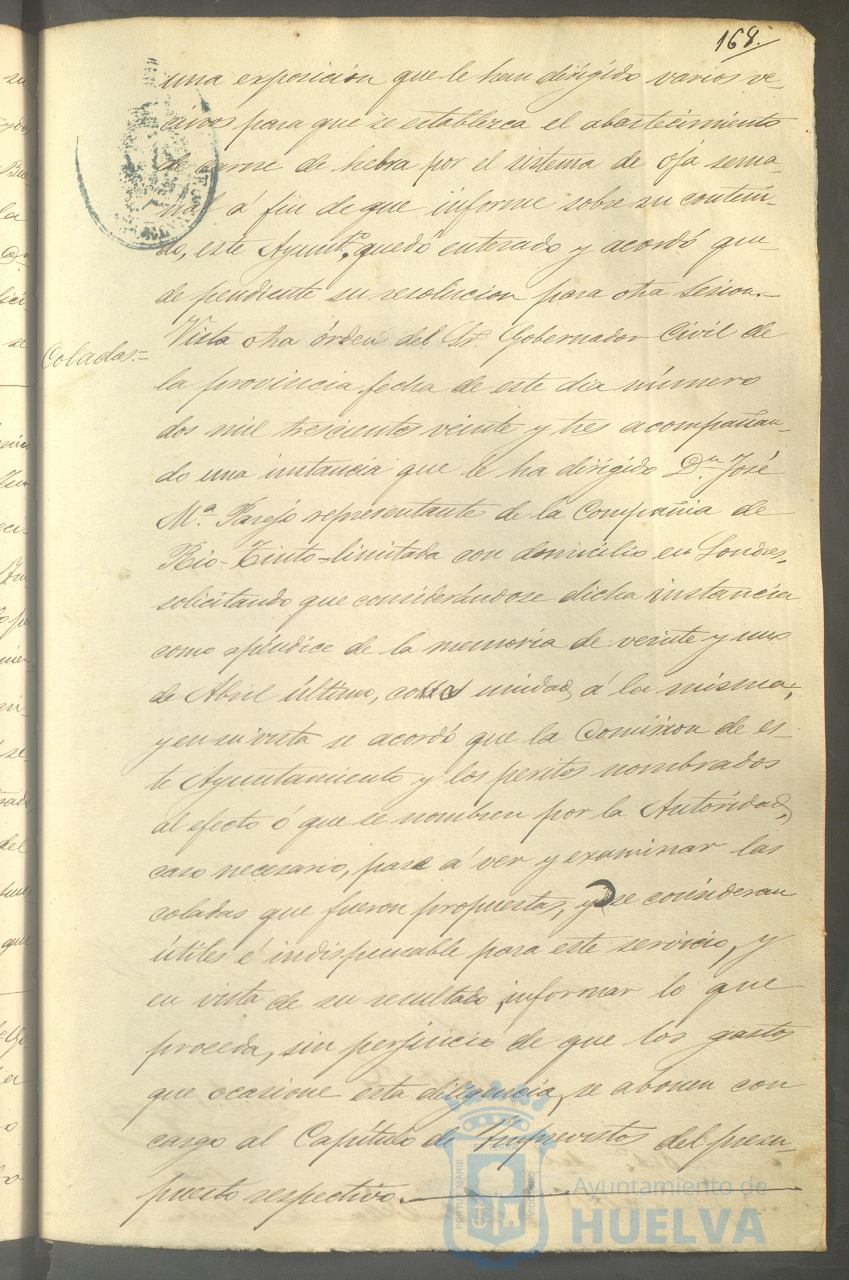 168.
una exposicion que le han dirigido varios ve-
cinos para que se establezca el abastecimiento
de carne de hebra por el sistema de ojá sema-
nal á fin de que informe sobre su conteni-
do, este Ayunt.º quedó enterado y acordó que-
de pendiente su resolucion para otra sesion.—
Coladas.=
Vista otra órden del Sr. Gobernador Civil de
la provincia fecha de este dia número
dos mil trescientos veinte y tres acompañan-
do una instancia que le ha dirigido D.n José
M.ª Parejo representante de la Compañia de
Rio-Tinto-limitada con domicilio en Londres,
solicitando que considerándose dicha instancia
como apéndice de la memoria de veinte y uno
de Abril último, unidad á la misma;
y en su vista se acordó que la Comision de es-
te Ayuntamiento y los peritos nombrados
al efecto ó que se nombren por la Autoridad,
caso necesario, pase á ver y examinar las
coladas que fueron propuestas, y se consideran
útiles é indispensable para este servicio, y
en vista de su resultado, informar lo que
proceda, sin perjuicio de que los gastos
que ocasione esta diligencia, se abonen con
cargo al Capítulo de Imprevistos del presu-
puesto respectivo.—
Ayuntamiento de
HUELVA